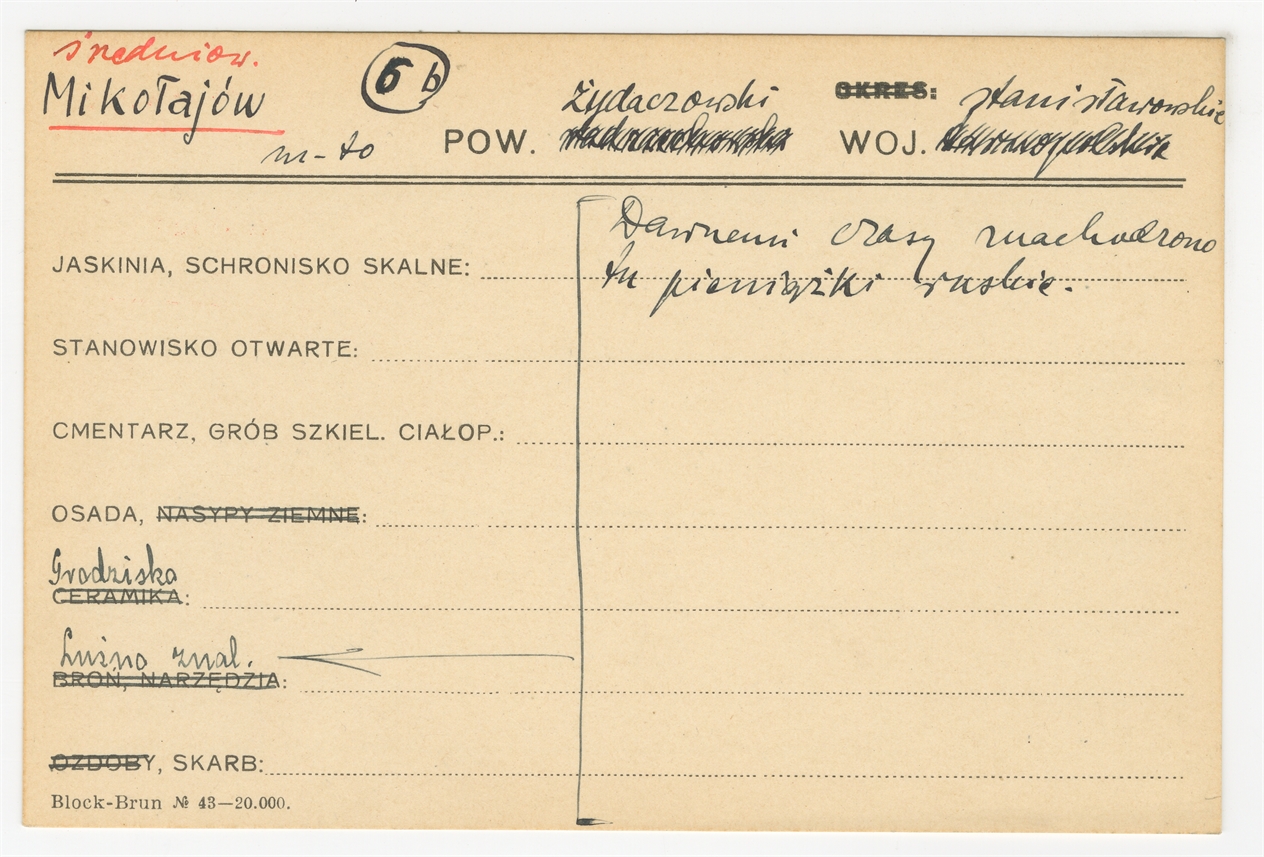 średniow.
Mikołajów 6 b
m-to
POW. żydaczowski
OKRES:
WOJ. stanisławowskie
Dawnemi czasy znachodzono
tu pieniążki ruskie.
JASKINIA, SCHRONISKO SKALNE:
STANOWISKO OTWARTE:
CMENTARZ, GRÓB SZKIEL. CIAŁOP.:
OSADA, NASYPY ZIEMNE:
Grodziska
CERAMIKA:
Luźno znal.
BROŃ, NARZĘDZIA:
OZDOBY, SKARB:
Block-Brun № 43—20.000.